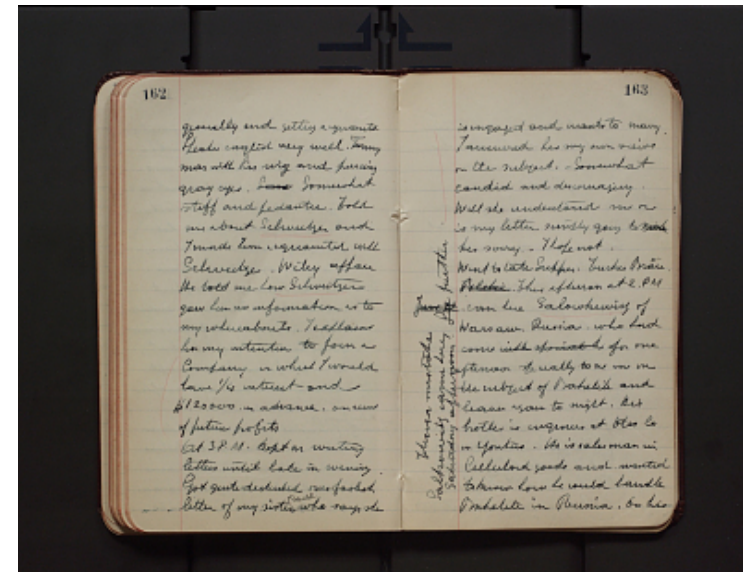 162
generally and getting acquainted
speaks english very well. Funny
man with his wig and piercing
gray eyes. Somewhat
stiff and pedantic. Told
me about Schweitzer and
I made him acquainted with
Schweitzer. Wiley affair
He told me how Schweitzer
gave him no information as to
my whereabouts. I explained
him my intention to form a
Company in which I would
have interest and
$120000 in advance, on account
of future profits
At 3 P.M. Kept on writing
letters until late in evening.
Got quite disgusted over foolish
letter of my sister who says she
163
is engaged and wants to marry.
I answered her my own views
on the subject. Somewhat
candid and discouraging.
Will she understand me or
is my letter simply going to
her sorrow. I hope not.
Went to late Supper.
This afternoon at 2 PM
came here
Warsaw, Russia. who had
come for one
afternoon specially to see me on
the subject of Bakelite and
leaves again to night. His
brother is engineer at Otis Co
in Yonkers. He is salesman in
Celluloid goods and wanted
to know how he could handle
Bakelite in Russia. On his
I have a mistake
came here
Saturday afternoon
further